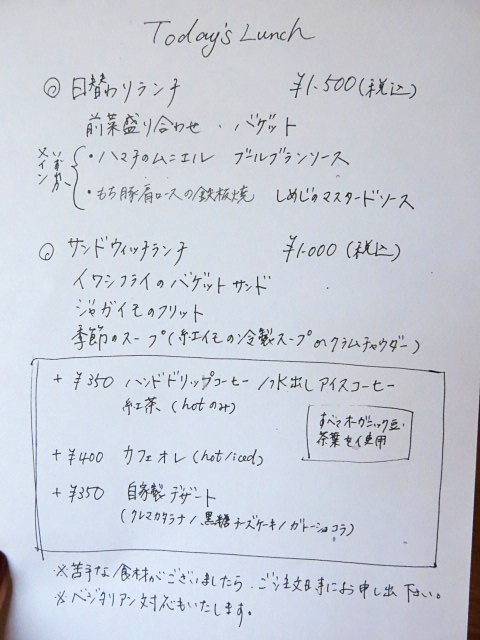 Today's Lunch
◎ 日替わりランチ ¥1.500(税込)
前菜盛り合わせ ・ バゲット
メイン いずれか
・ハマチのムニエル ブールブランソース
・もち豚肩ロースの鉄板焼 しめじのマスタードソース
◎ サンドウィッチランチ ¥1.000(税込)
イワシフライのバゲットサンド
ジャガイモのフリット
季節のスープ(紅イモの冷製スープ or クラムチャウダー)
+ ¥350 ハンドドリップコーヒー / 水出しアイスコーヒー
紅茶 (hotのみ)
すべてオーガニック豆・
茶葉を使用
+ ¥400 カフェオレ (hot/iced)
+ ¥350 自家製デザート
(クレマカタラナ / 黒糖チーズケーキ / ガトーショコラ)
※苦手な食材がございましたら、ご注文時にお申し出下さい。
※ベジタリアン対応もいたします。